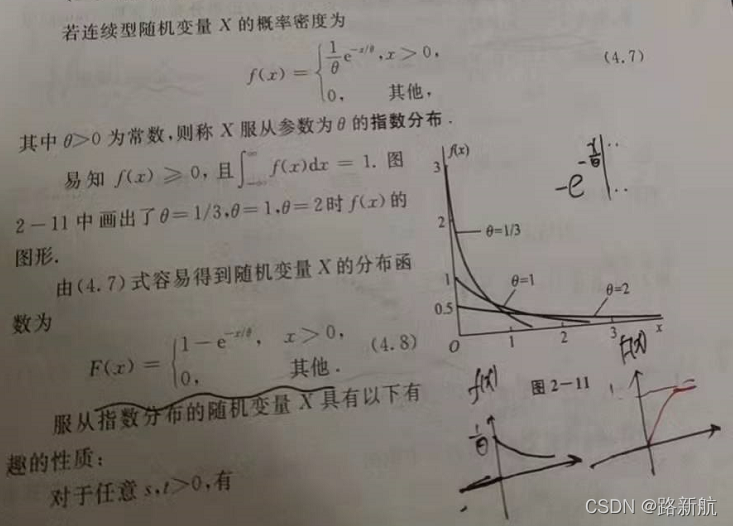 若连续型随机变量 X 的概率密度为
f(x) = { 1/θ e^{-x/θ}, x > 0,
0, 其他,
(4.7)
其中 θ>0 为常数,则称 X 服从参数为 θ 的指数分布.
易知 f(x) ⩾ 0, 且∫_{-∞}^{∞} f(x)dx = 1. 图
2-11 中画出了 θ=1/3,θ=1,θ=2 时 f(x) 的
图形.
由(4.7)式容易得到随机变量 X 的分布函
数为
F(x) = { 1 − e^{-x/θ}, x > 0,
0, 其他.
(4.8)
服从指数分布的随机变量 X 具有以下有
趣的性质:
对于任意 s,t>0,有
f(x)
3
2
1
0.5
O
1
2
3
x
θ=1/3
θ=1
θ=2
图 2-11
-e^{-x/θ}
f(x)
1/θ
F(x)
1
CSDN @路新航